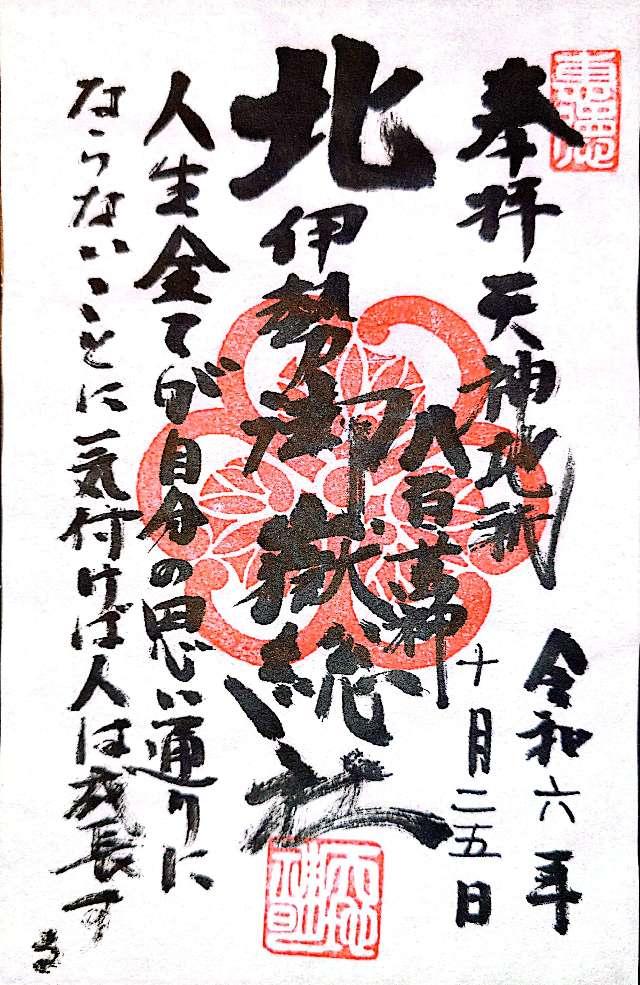 奉拝 天神地祇
八百万神
令和六年
十月二五日
北伊勢御嶽総社
人生全てが自分の思い通りに
ならないことに気付けば人は成長す
る